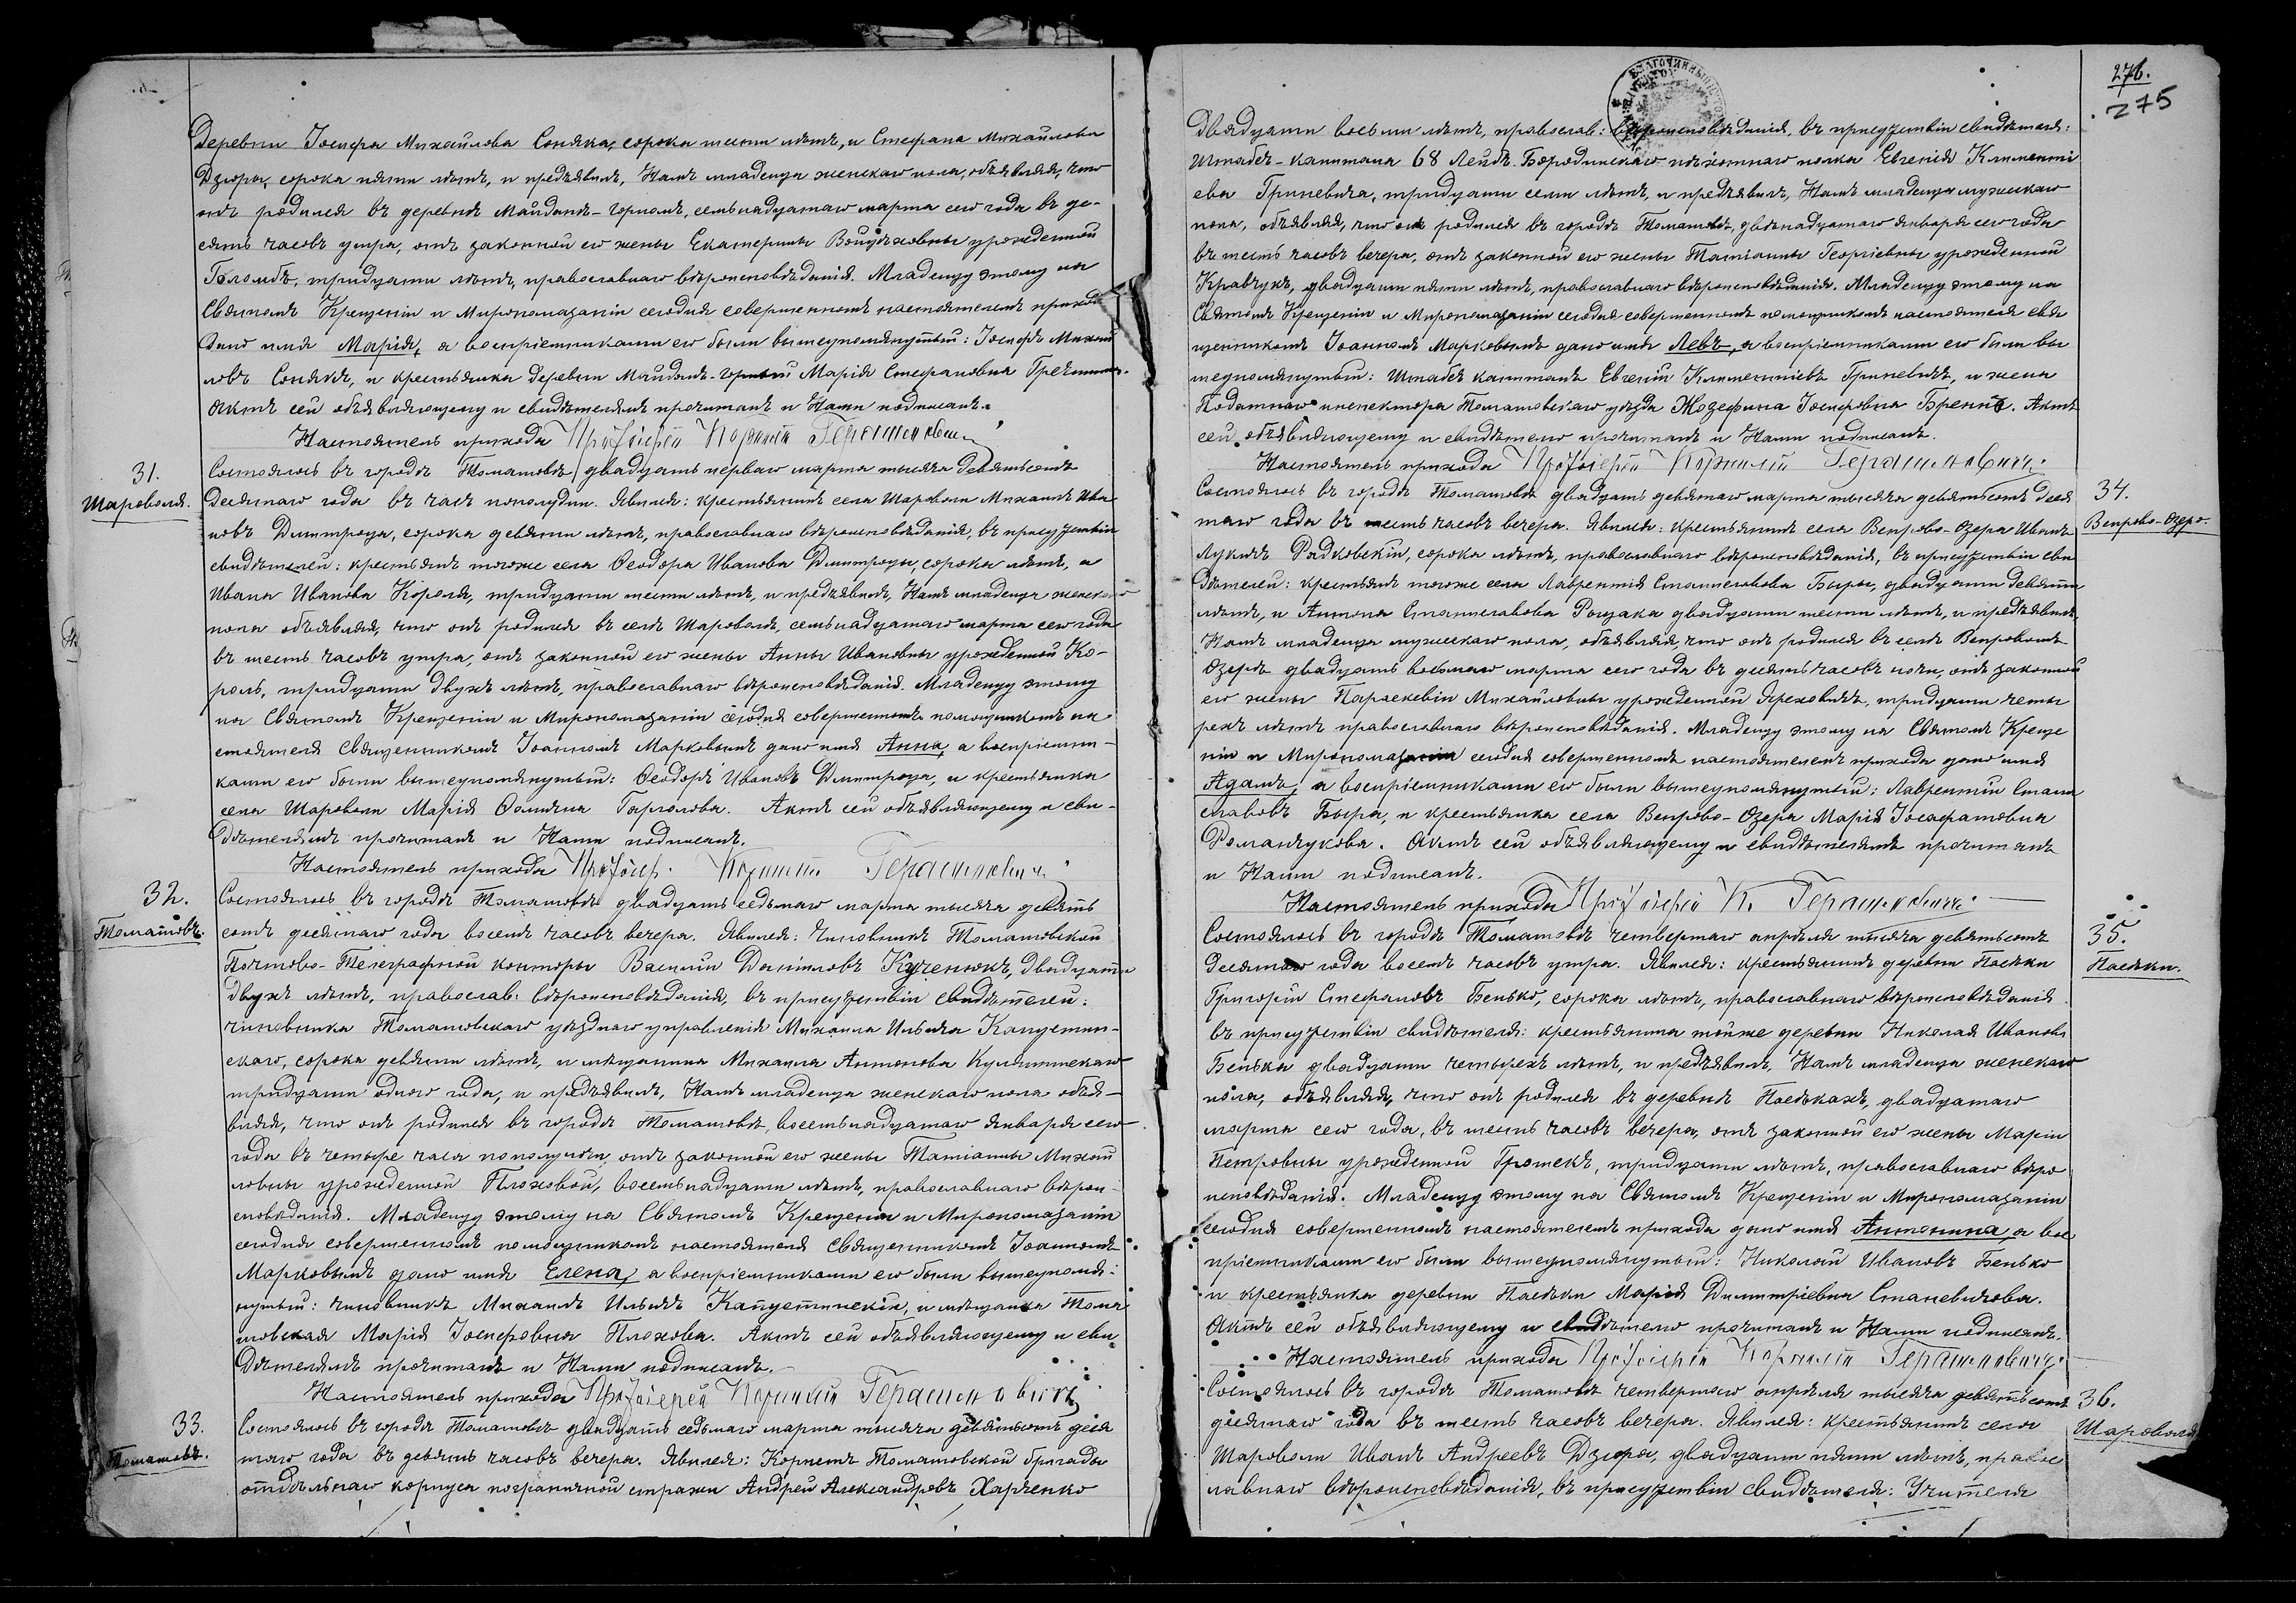 Деревни Іосифа Михайлова Соняка, сорока шести лѣтъ, и Стефана Михайлова
Дзюры, сорока пяти лѣтъ, и предъявилъ, Намъ младенца женскаго пола, объявляя, что
онъ родился въ деревнѣ Майданѣ-горномъ, семьнадцатаго марта сего года въ де-
сять часовъ утра, отъ законной его жены Екатерины Войцѣховны урожденной
Голомбъ, тридцати лѣтъ, православнаго вѣроисповѣданія. Младенцу этому на
Святомъ Крещеніи и Миропомазаніи сегодня совершенномъ настоятелемъ прихода
дано имя Марія, а воспріемниками его были вышеупомянутый: Іосифъ Михай
ловъ Сонякъ, и крестьянка деревни Майданъ-горный Марія Стефановна
Актъ сей объявляющему и свидѣтелямъ прочитанъ и Нами подписанъ.
Настоятель прихода Протоіерей Корнилій Герашимовичъ
31.
Шароволя.
Состоялось въ городѣ Томашовѣ двадцать перваго марта тысяча девятьсотъ
десятаго года въ часъ пополудни. Явился: крестьянинъ села Шароволи Михаилъ Ива
новъ Дмитроца, сорока девяти лѣтъ, православнаго вѣроисповѣданія, въ присутствіи
свидѣтелей: крестьянъ тогоже села Ѳеодора Иванова Дмитроцы, сорока лѣтъ, и
Ивана Иванова Короля, тридцати шести лѣтъ, и предъявилъ, Намъ младенца женскаго
пола объявляя, что онъ родился въ селѣ Шароволѣ, семьнадцатаго марта сего года
въ шесть часовъ утра, отъ законной его жены Анны Ивановны урожденной Ко-
роль, тридцати двухъ лѣтъ, православнаго вѣроисповѣданія. Младенцу этому
на Святомъ Крещеніи и Миропомазаніи сегодня совершенномъ помощникомъ на
стоятеля Священникомъ Іоанномъ Марковымъ дано имя Анна, а воспріемни-
ками его были вышеупомянутый: Ѳеодоръ Ивановъ Дмитроца, и крестьянка
села Шароволи Марія Ѳомична Гарголова. Актъ сей объявляющему и сви-
дѣтелямъ прочитанъ и Нами подписанъ.
Настоятель прихода Протоіер. Корнилій Герашимовичъ
32.
Томашовъ.
Состоялось въ городѣ Томашовѣ двадцать седьмаго марта тысяча девять
сотъ десятаго года восемь часовъ вечера. Явился: Чиновникъ Томашовской
Почтово-Телеграфной конторы Василій Даниловъ Кученюкъ, двадцати
двухъ лѣтъ, православ: вѣроисповѣданія, въ присутствіи свидѣтелей:
чиновника Томашовскаго уѣзднаго управленія Михаила Ильича Капустин-
скаго, сорока девяти лѣтъ, и мѣщанина Михаила Антонова
тридцати одного года, и предъявилъ, Намъ младенца женскаго пола объя-
вляя, что онъ родился въ городѣ Томашовѣ, восемьнадцатаго января сего
года въ четыре часа пополудни, отъ законной его жены Татіанны Михай
ловны урожденной Плоховой, восемьнадцати лѣтъ, православнаго вѣрои-
сповѣданія. Младенцу этому на Святомъ Крещеніи и Миропомазаніи
сегодня совершенномъ помощникомъ настоятеля Священникомъ Іоанномъ
Марковымъ дано имя Елена, а воспріемниками его были вышеупомя-
нутый: чиновникъ Михаилъ Ильичъ Капустинскій, и мѣщанка Тома
шовская Марія Іосифовна Плохова. Актъ сей объявляющему и сви
дѣтелямъ прочитанъ и Нами подписанъ.
Настоятель прихода Протоіерей Корнилій Герашимовичъ
33.
Томашовъ.
Состоялось въ городѣ Томашовѣ двадцать седьмаго марта тысяча девятьсотъ деся
таго года въ девять часовъ вечера. Явился: Корнетъ Томашовской бригады
отдѣльнаго корпуса пограничной стражи Андрей Александровъ Харченко
276.
275
двадцати восьми лѣтъ, православ: вѣроисповѣданія, въ присутствіи свидѣтеля:
Штабсъ-капитана 68 Лейбъ. Бородинскаго пѣхотнаго полка Евгенія Климентi
ева Гриневича, тридцати семи лѣтъ, и предъявилъ, Намъ младенца мужскаго
пола, объявляя, что онъ родился въ городѣ Томашовѣ, двѣнадцатаго января сего года
въ шесть часовъ вечера, отъ законной его жены Татіанны Георгіевны урожденной
Кравчукъ, двадцати пяти лѣтъ, православнаго вѣроисповѣданія. Младенцу этому на
Святомъ Крещеніи и Миропомазаніи сегодня совершенномъ помощникомъ настоятеля свя
щенникомъ Іоанномъ Марковымъ дано имя Левъ, а воспріемниками его были вы
шеупомянутый: Штабсъ капитанъ Евгеній Климентіевъ Гриневичъ, и жена
Податнаго инспектора Томашовскаго уѣзда Жозефина Іосифовна Актъ
сей объявляющему и свидѣтелю прочитанъ и Нами подписанъ.
Настоятель прихода Протоіерей Корнилій Герашимовичъ
34.
Вепрово-Озеро.
Состоялось въ городѣ Томашовѣ двадцать девятаго марта тысяча девятьсотъ деся
таго года въ шесть часовъ вечера. Явился: крестьянинъ села Вепрово-Озера Иванъ
Лукичъ Радковскій, сорока лѣтъ, православнаго вѣроисповѣданія, въ присутствіи сви
дѣтелей: крестьянъ тогоже села Лаврентія Станиславова Быры, двадцати девяти
лѣтъ, и Антона Станиславова Рощака двадцати шести лѣтъ, и предъявилъ,
Намъ младенца мужскаго пола, объявляя, что онъ родился въ селѣ Вепровомъ
Озерѣ двадцать восьмаго марта сего года въ десять часовъ ночи, отъ законной
его жены Параскевіи Михайловны урожденной Яреховичъ, тридцати четы
рехъ лѣтъ православнаго вѣроисповѣданія. Младенцу этому на Святомъ Креще
ніи и Миропомазаніи сегодня совершенномъ настоятелемъ прихода дано имя
Адамъ, а воспріемниками его были вышеупомянутый: Лаврентій Стани
славовъ Быра, и крестьянка села Вепрово-Озера Марія Іосафатовна
Романчукова. Актъ сей объявляющему и свидѣтелямъ прочитанъ
и Нами подписанъ.
Настоятель прихода Протоіерей К. Герашимовичъ
35.
Пасѣки.
Состоялось въ городѣ Томашовѣ четвертаго апрѣля тысяча девятьсотъ
десятаго года восемь часовъ утра. Явился: крестьянинъ деревни Пасѣки
Григорій Стефановъ Бенько, сорока лѣтъ, православнаго вѣроисповѣданія
въ присутствіи свидѣтеля: крестьянина тойже деревни Николая Иванова
Бенька двадцати четырехъ лѣтъ, и предъявилъ, Намъ младенца женскаго
пола, объявляя, что онъ родился въ деревнѣ Пасѣкахъ, двадцатаго
марта сего года, въ шесть часовъ вечера, отъ законной его жены Маріи
Петровны урожденной Грошекъ, тридцати лѣтъ, православнаго вѣро
исповѣданія. Младенцу этому на Святомъ Крещеніи и Миропомазаніи
сегодня совершенномъ настоятелемъ прихода дано имя Антонина, а вос
пріемниками его были вышеупомянутый: Николай Ивановъ Бенько
и крестьянка деревни Пасѣки Марія Димитріевна Станевичова.
Актъ сей объявляющему и свидѣтелю прочитанъ и Нами подписанъ.
Настоятель прихода Протоіерей Корнилій Герашимовичъ
36.
Шароволя
Состоялось въ городѣ Томашовѣ четвертаго апрѣля тысяча девятьсотъ
десятаго года въ шесть часовъ вечера. Явился: крестьянинъ села
Шароволи Иванъ Андреевъ Дзюра, двадцати пяти лѣтъ, правос
лавнаго вѣроисповѣданія, въ присутствіи свидѣтеля: Учителя